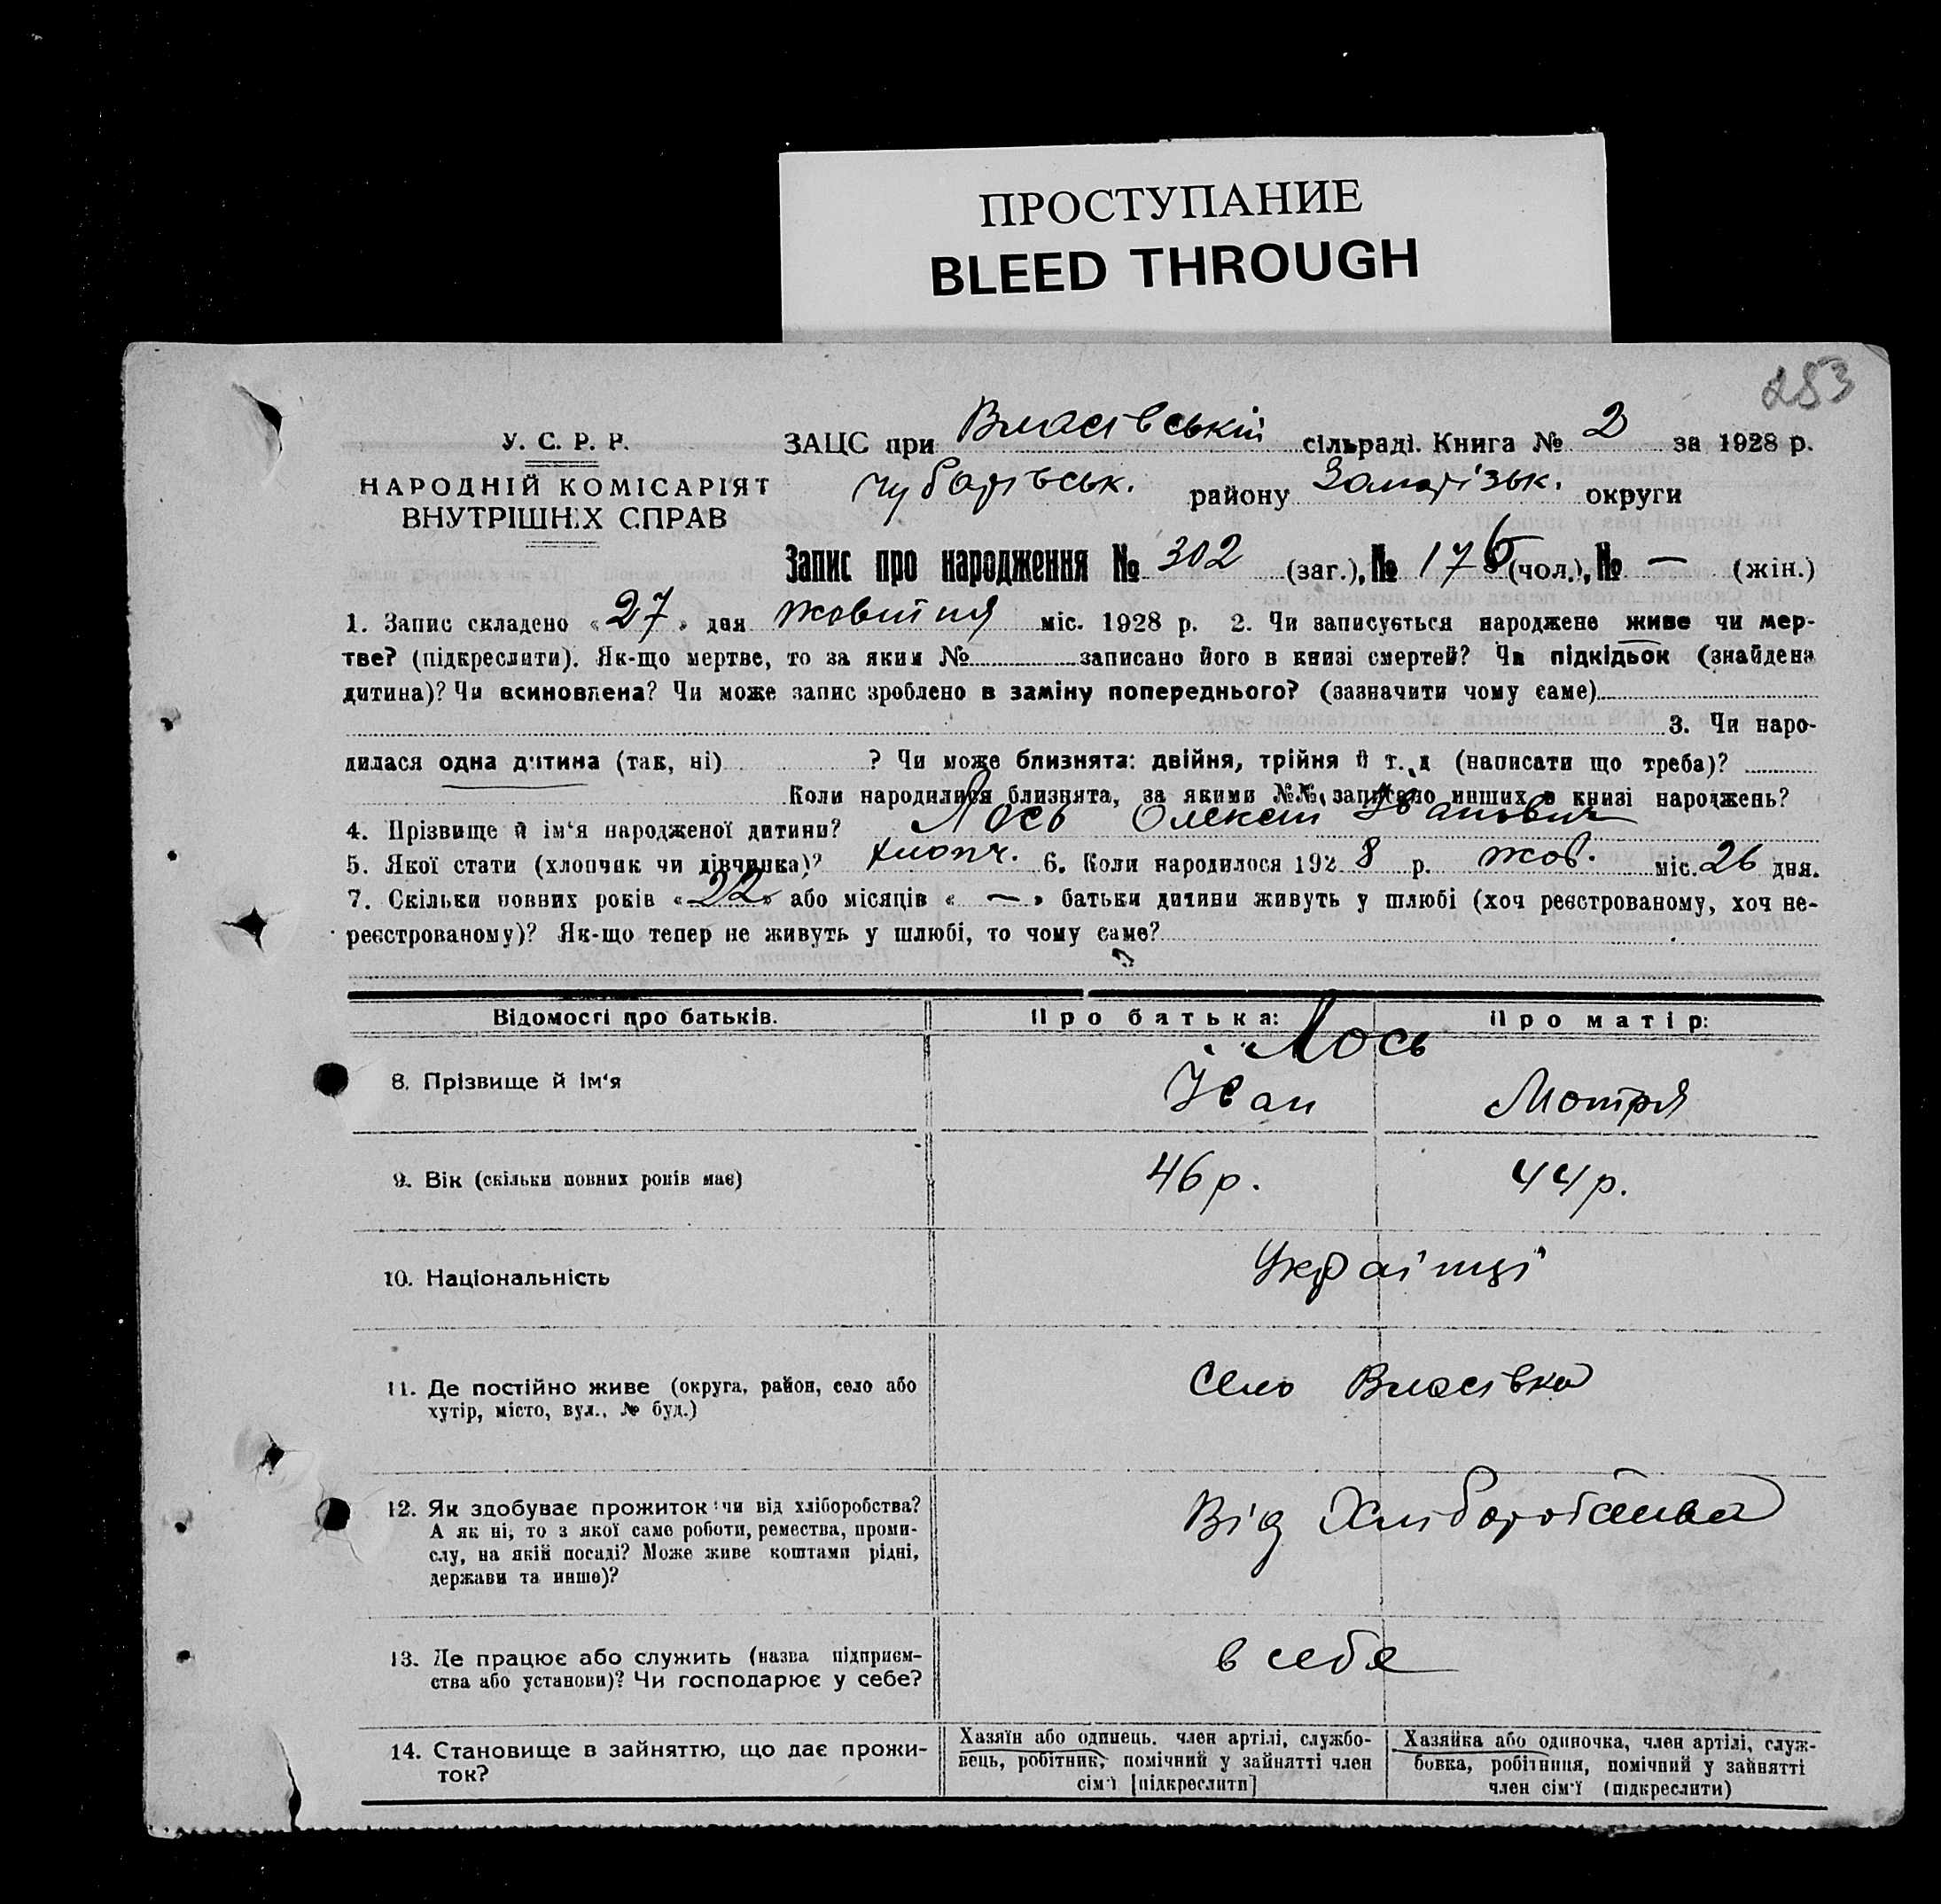 ПРОСТУПАНИЕ
BLEED THROUGH
283
У. С. Р. Р.
НАРОДНІЙ КОМІСАРІЯТ
ВНУТРІШНІХ СПРАВ
ЗАЦС при Власівській сільраді. Книга № 2 за 1928 р.
Чубарівськ. району Запорізьк. округи
Запис про народження № 302 (заг.), № 176 (чол.), № — (жін.)
1. Запис складено «27» дня жовтня міс. 1928 р. 2. Чи записується народжене живе чи мер-
тве? (підкреслити). Як-що мертве, то за яким № записано його в книзі смертей? Чи підкідьок (знайдена
дитина)? Чи всиновлена? Чи може запис зроблено в заміну попереднього? (зазначити чому саме)
3. Чи наро-
дилася одна дитина (так, ні) ? Чи може близнята: двійня, трійня й т. д (написати що треба)?
Коли народилися близнята, за якими №№ записано инших в книзі народжень?
4. Прізвище й ім‘я народженої дитини? Лось Олексій Іванович
5. Якої стати (хлопчик чи дівчинка)? хлопч. 6. Коли народилося 1928 р. жов. міс. 26 дня.
7. Скільки повних років «22» або місяців «—» батьки дитини живуть у шлюбі (хоч реєстрованому, хоч не-
реєстрованому)? Як-що тепер не живуть у шлюбі, то чому саме?
Відомості про батьків. Про батька: Про матір:
Лось
8. Прізвище й ім‘я Іван Мотря
9. Вік (скільки повних років має) 46 р. 44 р.
10. Національність Українці
11. Де постійно живе (округа, район, село або
хутір, місто, вул., № буд.)
Село Власівка
12. Як здобуває прожиток: чи від хліборобства?
А як ні, то з якої саме роботи, ремества, проми-
слу, на якій посаді? Може живе коштами рідні,
держави та инше)?
Від Хліборобства
13. Де працює або служить (назва підприєм-
ства або установи)? Чи господарює у себе?
в себе
14. Становище в зайняттю, що дає прожи-
ток?
Хазяїн або одинець, член артілі, службо-
вець, робітник, помічний у зайнятті член
сім‘ї [підкреслити]
Хазяйка або одиночка, член артілі, служ-
бовка, робітниця, помічний у зайнятті
член сім‘ї (підкреслити)